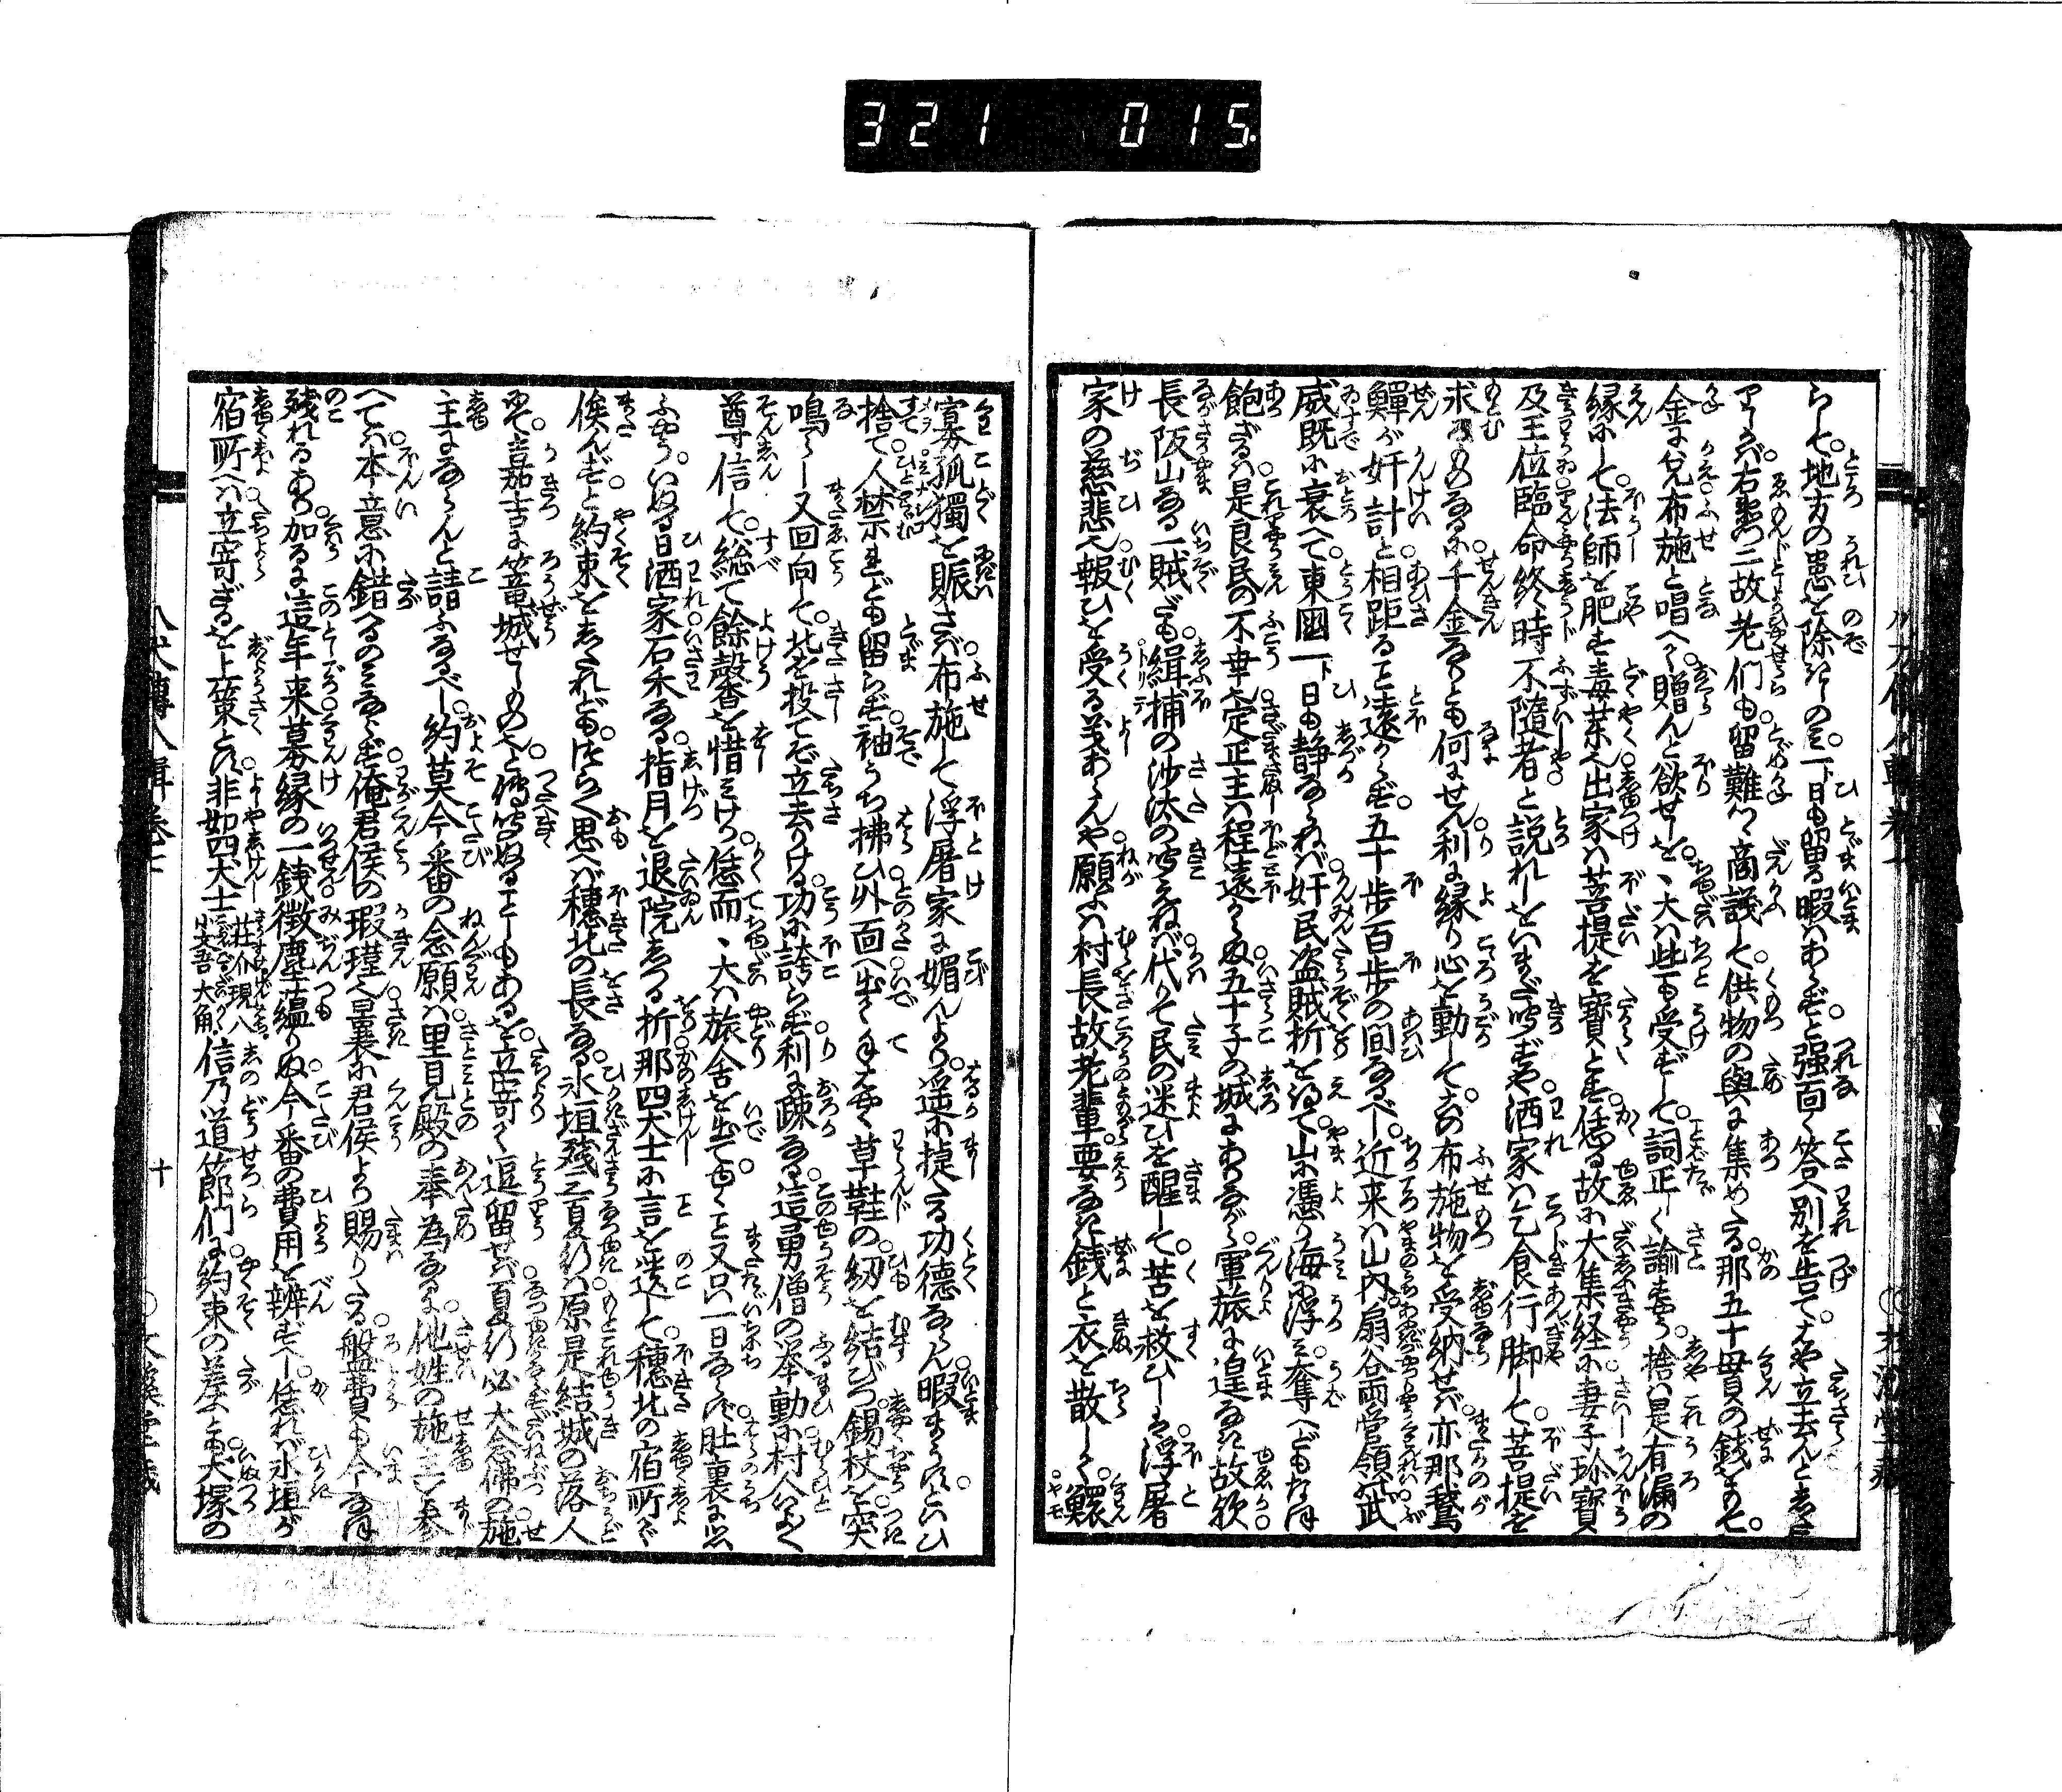 321 015
らして地方の患を除きしのみ一日も留る暇はあらずと強面く答へ別を告てはや立去んとしたり
しかば右惣二故老们も留難つ商議して供物の與に集めたる那五十貫の銭をもて
金に兌布施と唱へて贈んと欲せしを、大は些も受ずして詞正しく諭すやう捨は是有漏の
縁にして法師を肥す毒薬也出家は菩提を寳とす恁る故に大集経に妻子珍寳
及王位臨命終時不隨者と説れしをいまだ聞ずや洒家は乞食行脚して菩提を
求るものなるに千金なりとも何にせん利に縁り心を動して布施物を受納せば亦那鵞
鱓が奸計と相距ること遠からず五十歩百歩の間なるべし近来は山内扇谷両管領の武
威既に衰へて東國一日も静ならねば奸民盗賊折を得て山に憑り海に浮み奪へどもなほ
飽ざるは是良民の不幸也定正主は程遠からぬ五十子の城にありながら軍旅に遑なき故歟
長阪山なる一賊だも緝捕の沙汰の聞えねば代りて民の迷ひを醒して苦を救ひしは浮屠
家の慈悲也報ひを受る義あらんや願ふは村長故老輩要なき銭と衣を散して鰥
寡孤獨を賑さば布施して浮屠家に媚んより遥に捷たる功徳ならん暇まうすといひ
捨て人禁れども留らず袖うち拂ひ外面へ出て手はやく草鞋の紐を結びつ錫杖を突
鳴らし又回向して北を投てぞ立去りける功に誇らず利に疎なる這勇僧の挙動に村人いよゝ
尊信して総て餘馨を惜みけり恁而、大は旅舎を出てゆくこと又只一日ならず肚裏に思
ふやういぬる日洒家石禾なる指月を退院しつる折那四犬士に言を遺して穂北の宿所で
俟んずと約束をしたれども つらつら思へば穂北の長なる氷垣残三夏行は原是結城の落人
にて嘉吉に篭城せしものと傳聞ぬることしもあるを立寄りて逗留せば夏行必大念佛の施
主にならんと請ふなるべし約莫今番の念願は里見殿の奉為なるに他姓の施主を参
へては本意に錯へるのみならず俺君侯の瑕瑾也曩に君侯より賜りたる盤費も今なほ
残れるあり加るに這年来募縁の一銭微塵蘊りぬ今番の費用を辨ずべし恁れば氷垣が
宿所へは立寄ざるを上策とす非如四犬士荘介現八小文吾大角信乃道節们に約束の差ふとも犬塚の
八犬傳八輯巻七
十
文溪堂藏